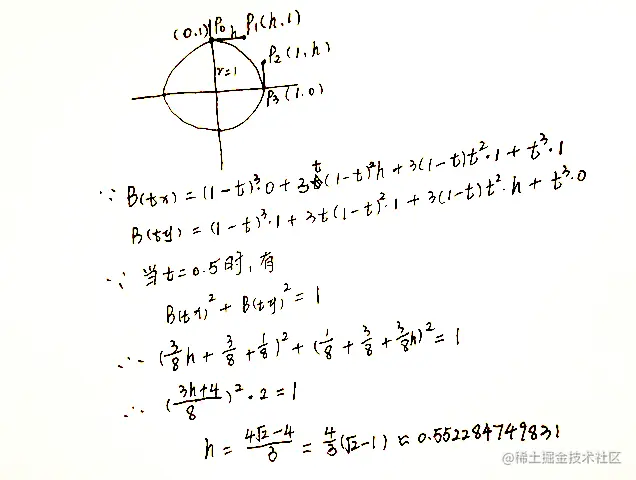 (0.1) P₀ h P₁(h,1)
P₂(1,h)
r=1
P₃(1.0)
∵ B(tx) = (1-t)³·0 + 3t(1-t)²h + 3(1-t)t²·1 + t³·1
B(ty) = (1-t)³·1 + 3t(1-t)²·1 + 3(1-t)t²·h + t³·0
∵ 当t=0.5时,有
B(tx)² + B(ty)² = 1
∴ (3/8h + 3/8 + 1/8)² + (1/8 + 3/8 + 3/8h)² = 1
∴ ((3h+4)/8)²·2 = 1
h = (4√2-4)/3 = 4/3(√2-1) ≈ 0.552284749831
@稀土掘金技术社区